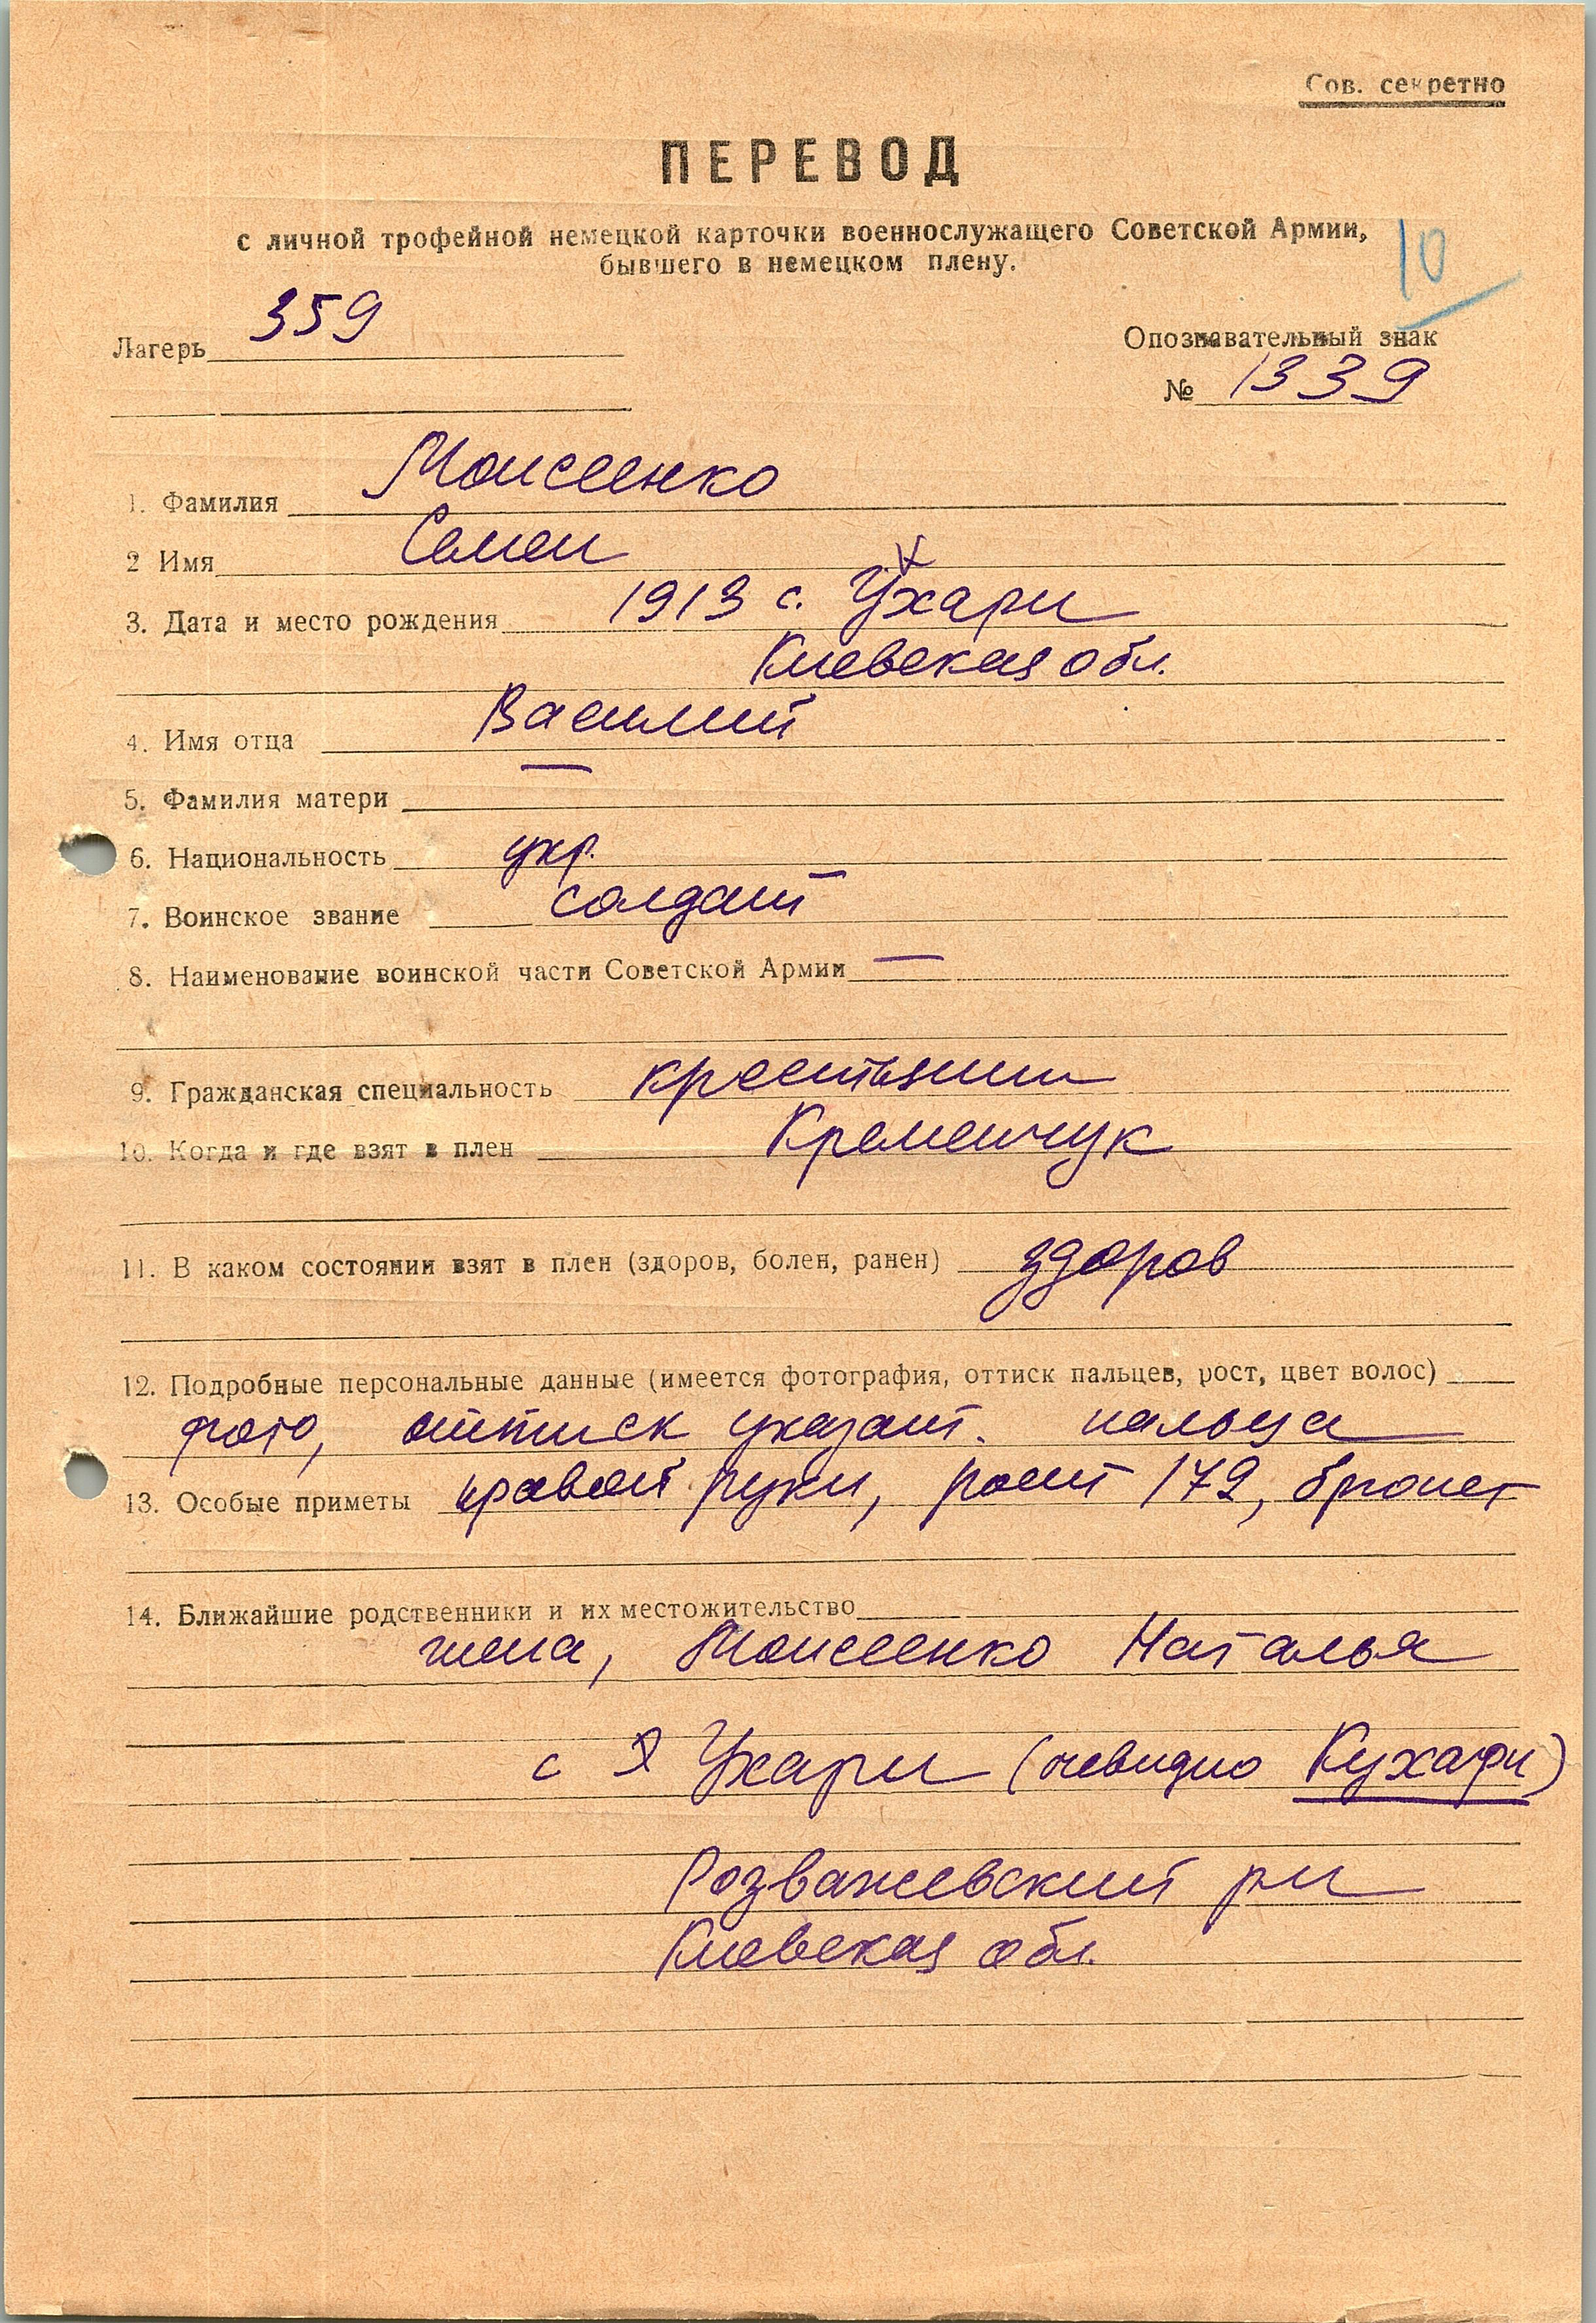 Сов. секретно
ПЕРЕВОД
с личной трофейной немецкой карточки военнослужащего Советской Армии,
бывшего в немецком плену.
10
Лагерь 359
Опознавательный знак
№ 1339
1. Фамилия Моисеенко
2 Имя Семен
3. Дата и место рождения 1913 с. Ухари
Киевская обл.
4. Имя отца Василий
5. Фамилия матери —
6. Национальность укр.
7. Воинское звание солдат
8. Наименование воинской части Советской Армии —
9. Гражданская специальность крестьянин
10. Когда и где взят в плен Кременчук
11. В каком состоянии взят в плен (здоров, болен, ранен) здоров
12. Подробные персональные данные (имеется фотография, оттиск пальцев, рост, цвет волос)
фото, оттиск указат. пальца
13. Особые приметы правой руки, рост 172, брюнет
14. Ближайшие родственники и их местожительство
жена, Моисеенко Наталья
с Ухари (очевидно Кухари)
Розважевский рн
Киевская обл.